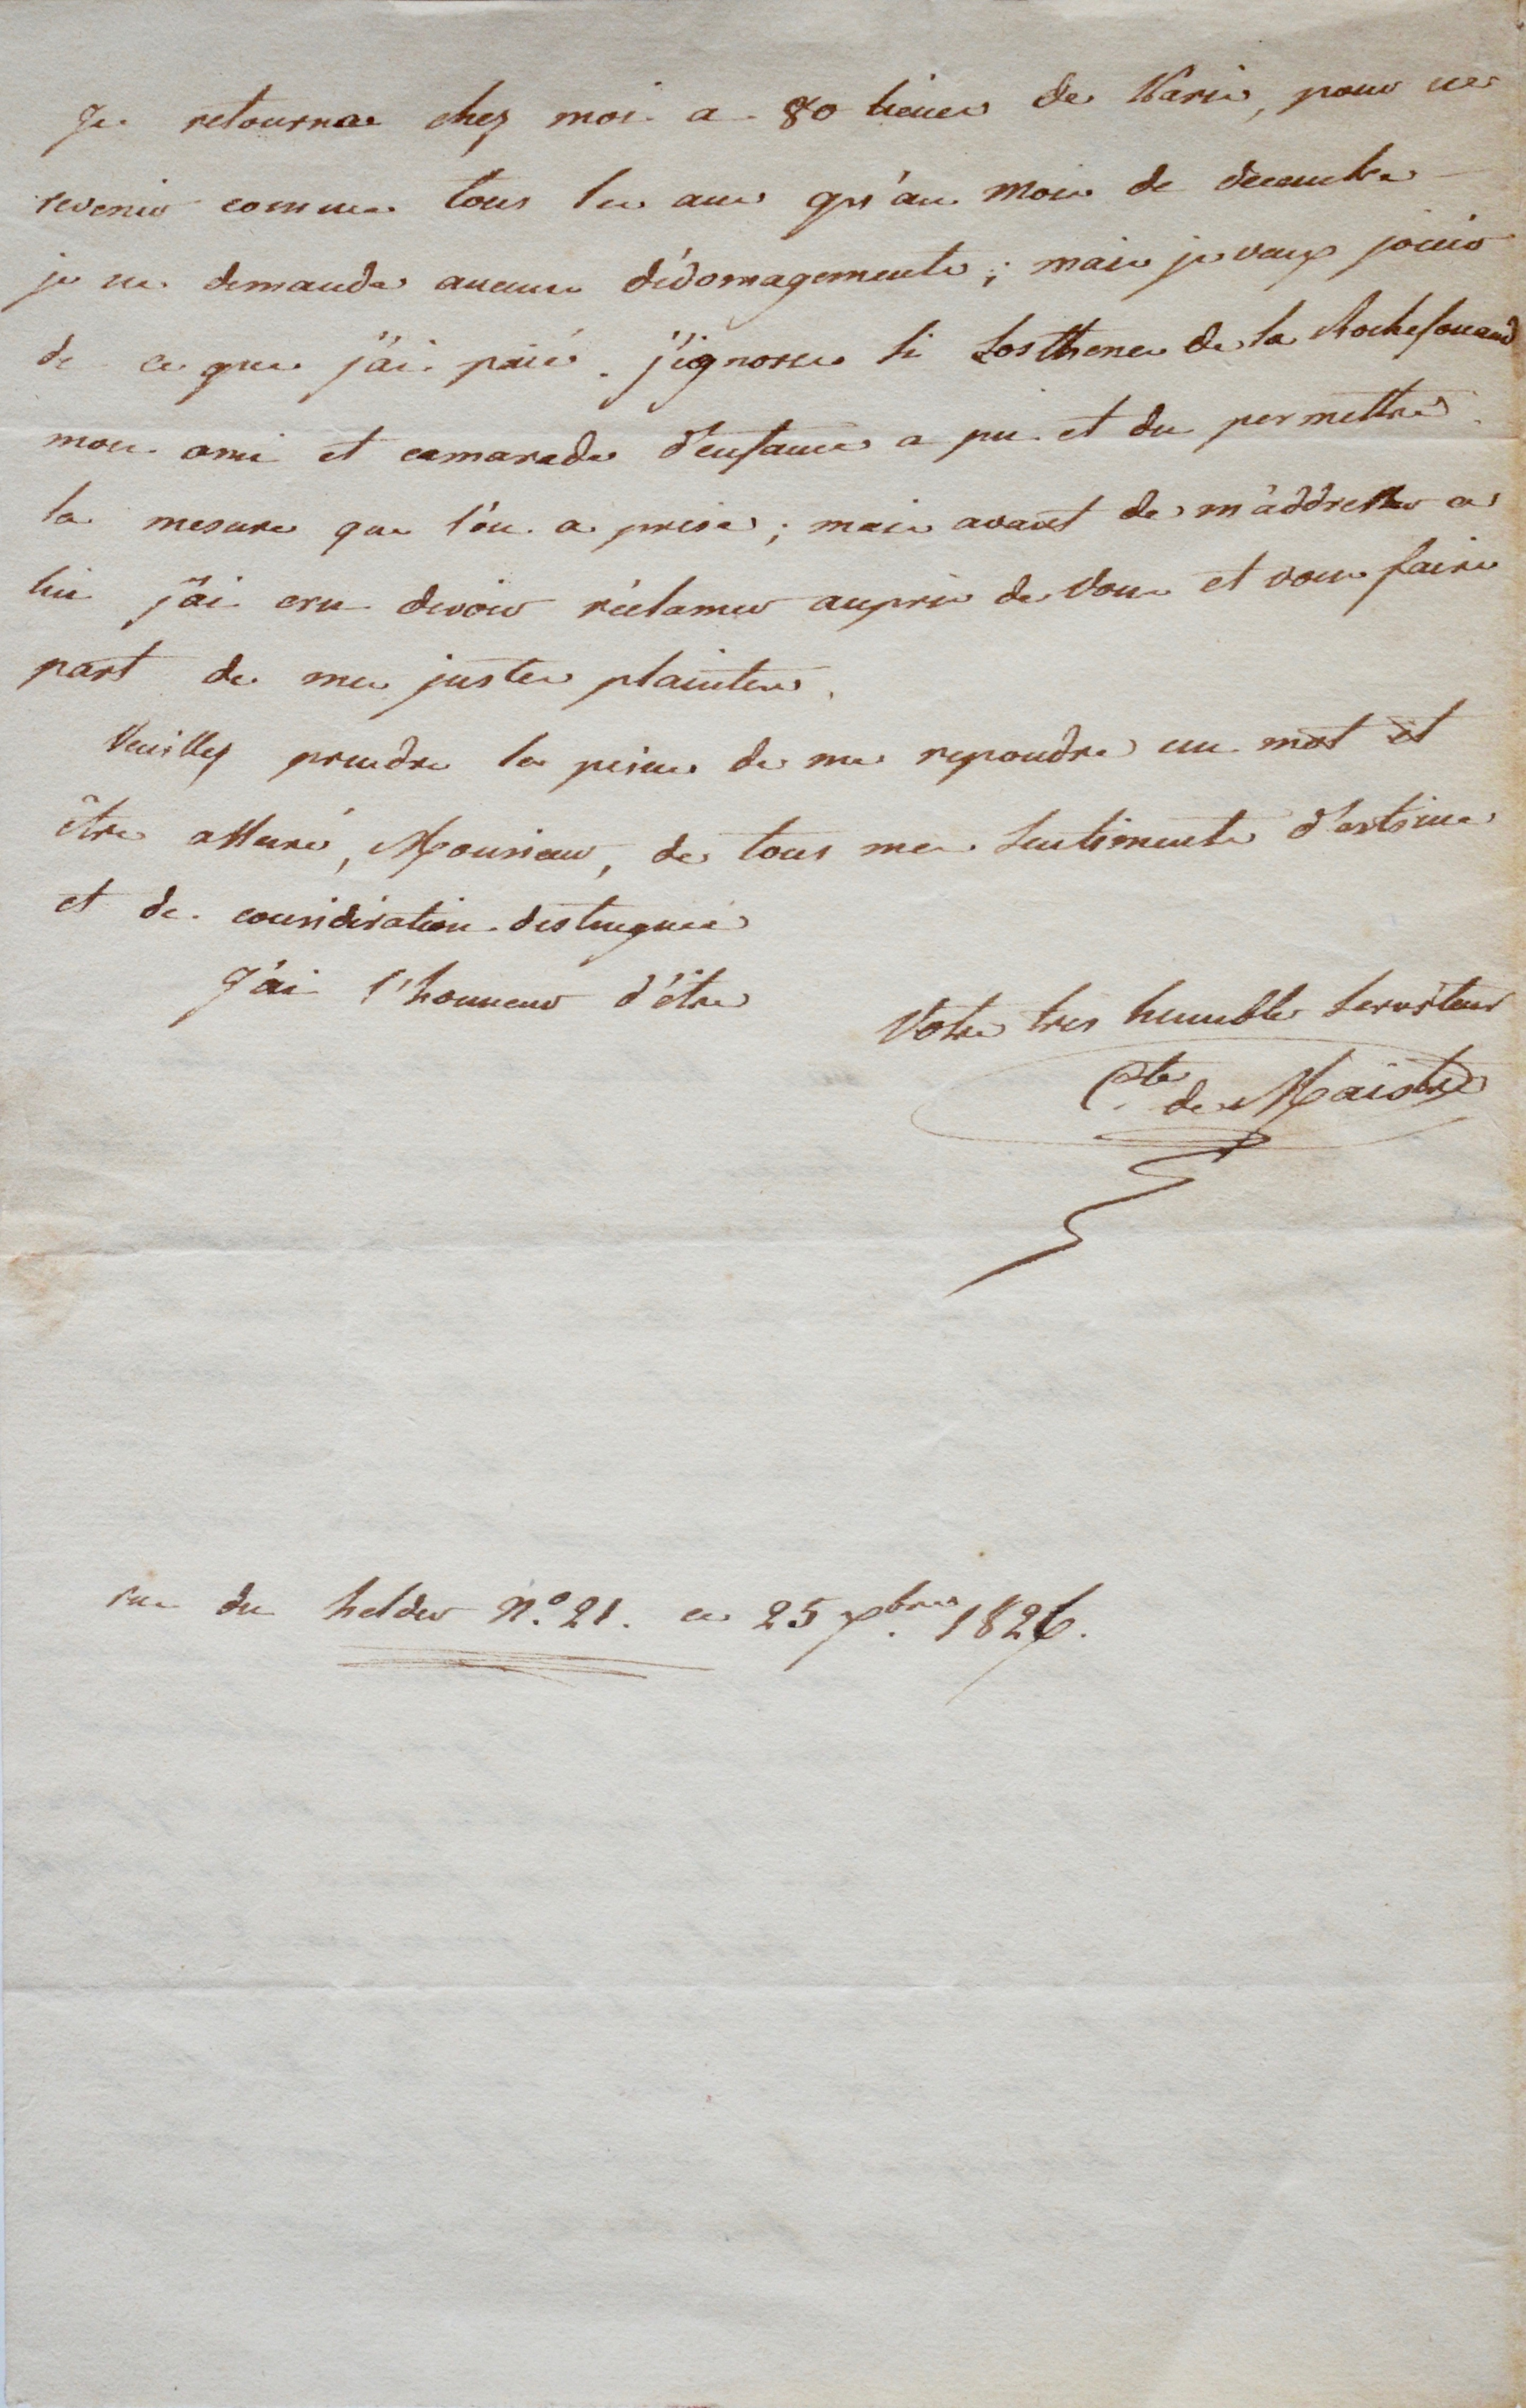 Je retourne chez moi a 80 lieues de Paris, pour ne
revenir comme tous les ans qu'au mois de decembre
je ne demande aucuns dédomagements ; mais je veux jouir
de ce que j'ai paié. j'ignore si Sosthenes de la Rochefoucaud
mon ami et camarade d'enfance a pu et du permettre
la mesure que l'on a prise ; mais avant de m'addresser a
lui j'ai cru devoir réclamer auprès de vous et vous faire
part de mes justes plaintes.
Veuillez prendre la peine de me repondre un mot et
être assuré, Monsieur, de tous mes sentiments d'estime
et de considération distinguée
J'ai l'honneur d'être
Votre tres humble serviteur
Cte de Maistre
rue du helder N.º 21. ce 25 bre 1826.